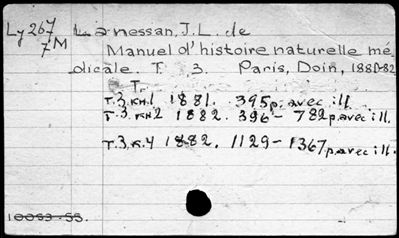 Ly 267 Lanessan, J.L. de
7M Manuel d'histoire naturelle mé-
dicale. T. 3. Paris, Doin, 1880-82
T.
T.3. кн.1 1881. 395p. avec ill.
T.3. кн2 1882. 396-782p. avec ill.
T.3. к.4 1882. 1129-1367p. avec ill.
10053-55.